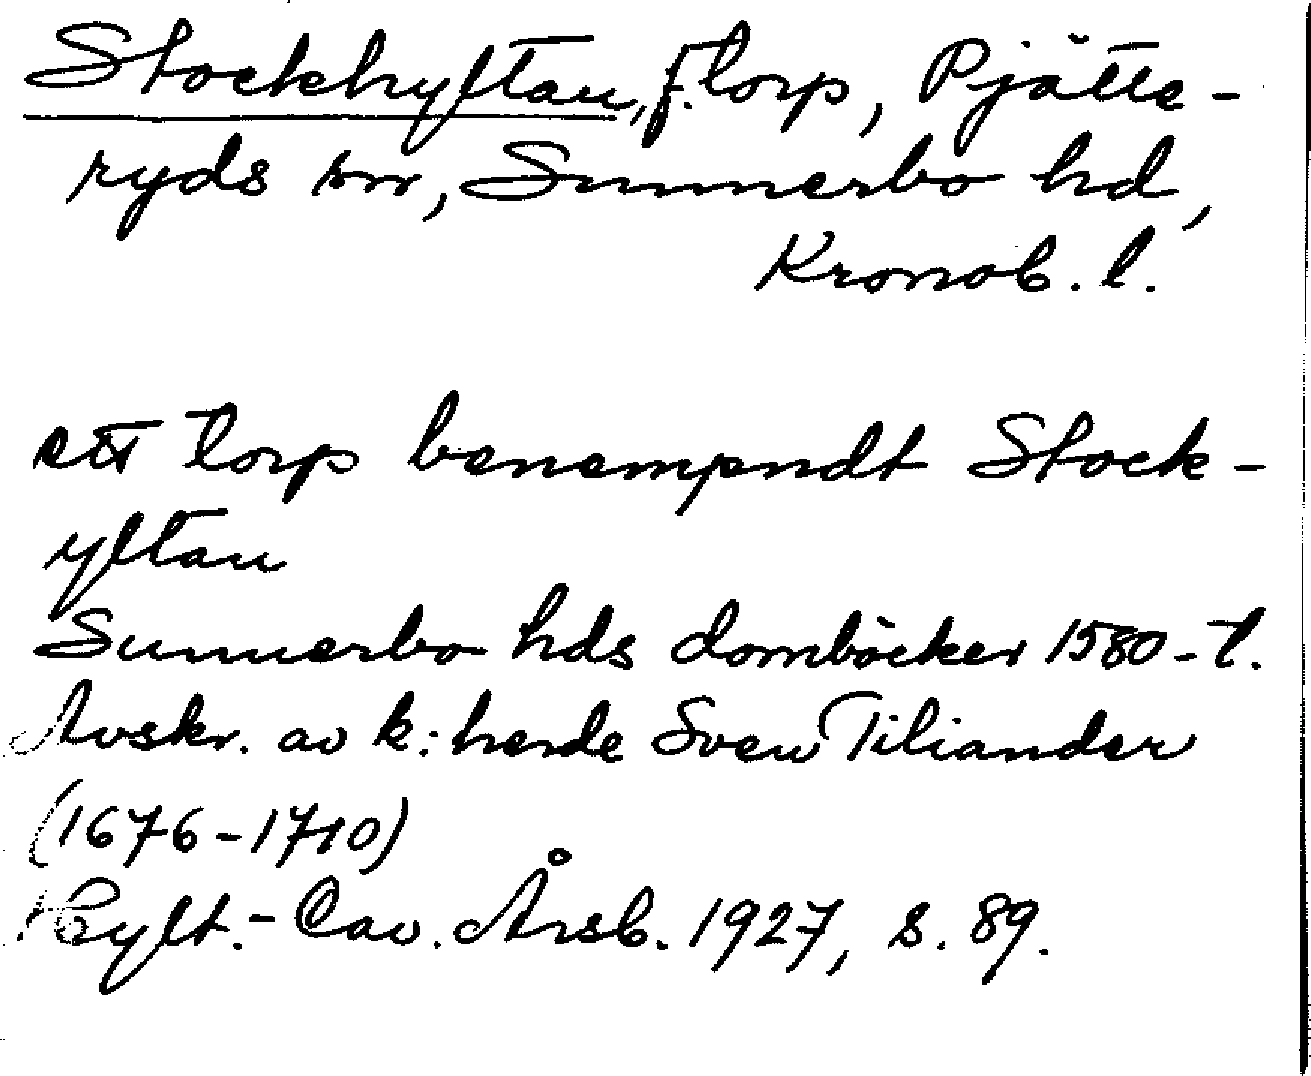 Stockhyltan, f. torp, Pjätte-
ryds sn, Sunnerbo hd,
Kronob. l.
ett torp benempndt Stock-
yltan
Sunnerbo hds domböcker 1580-t.
Avskr. av k:herde Sven Tiliander
(1676-1710)
Hylt.-Cav. Årsb. 1927, s. 89.